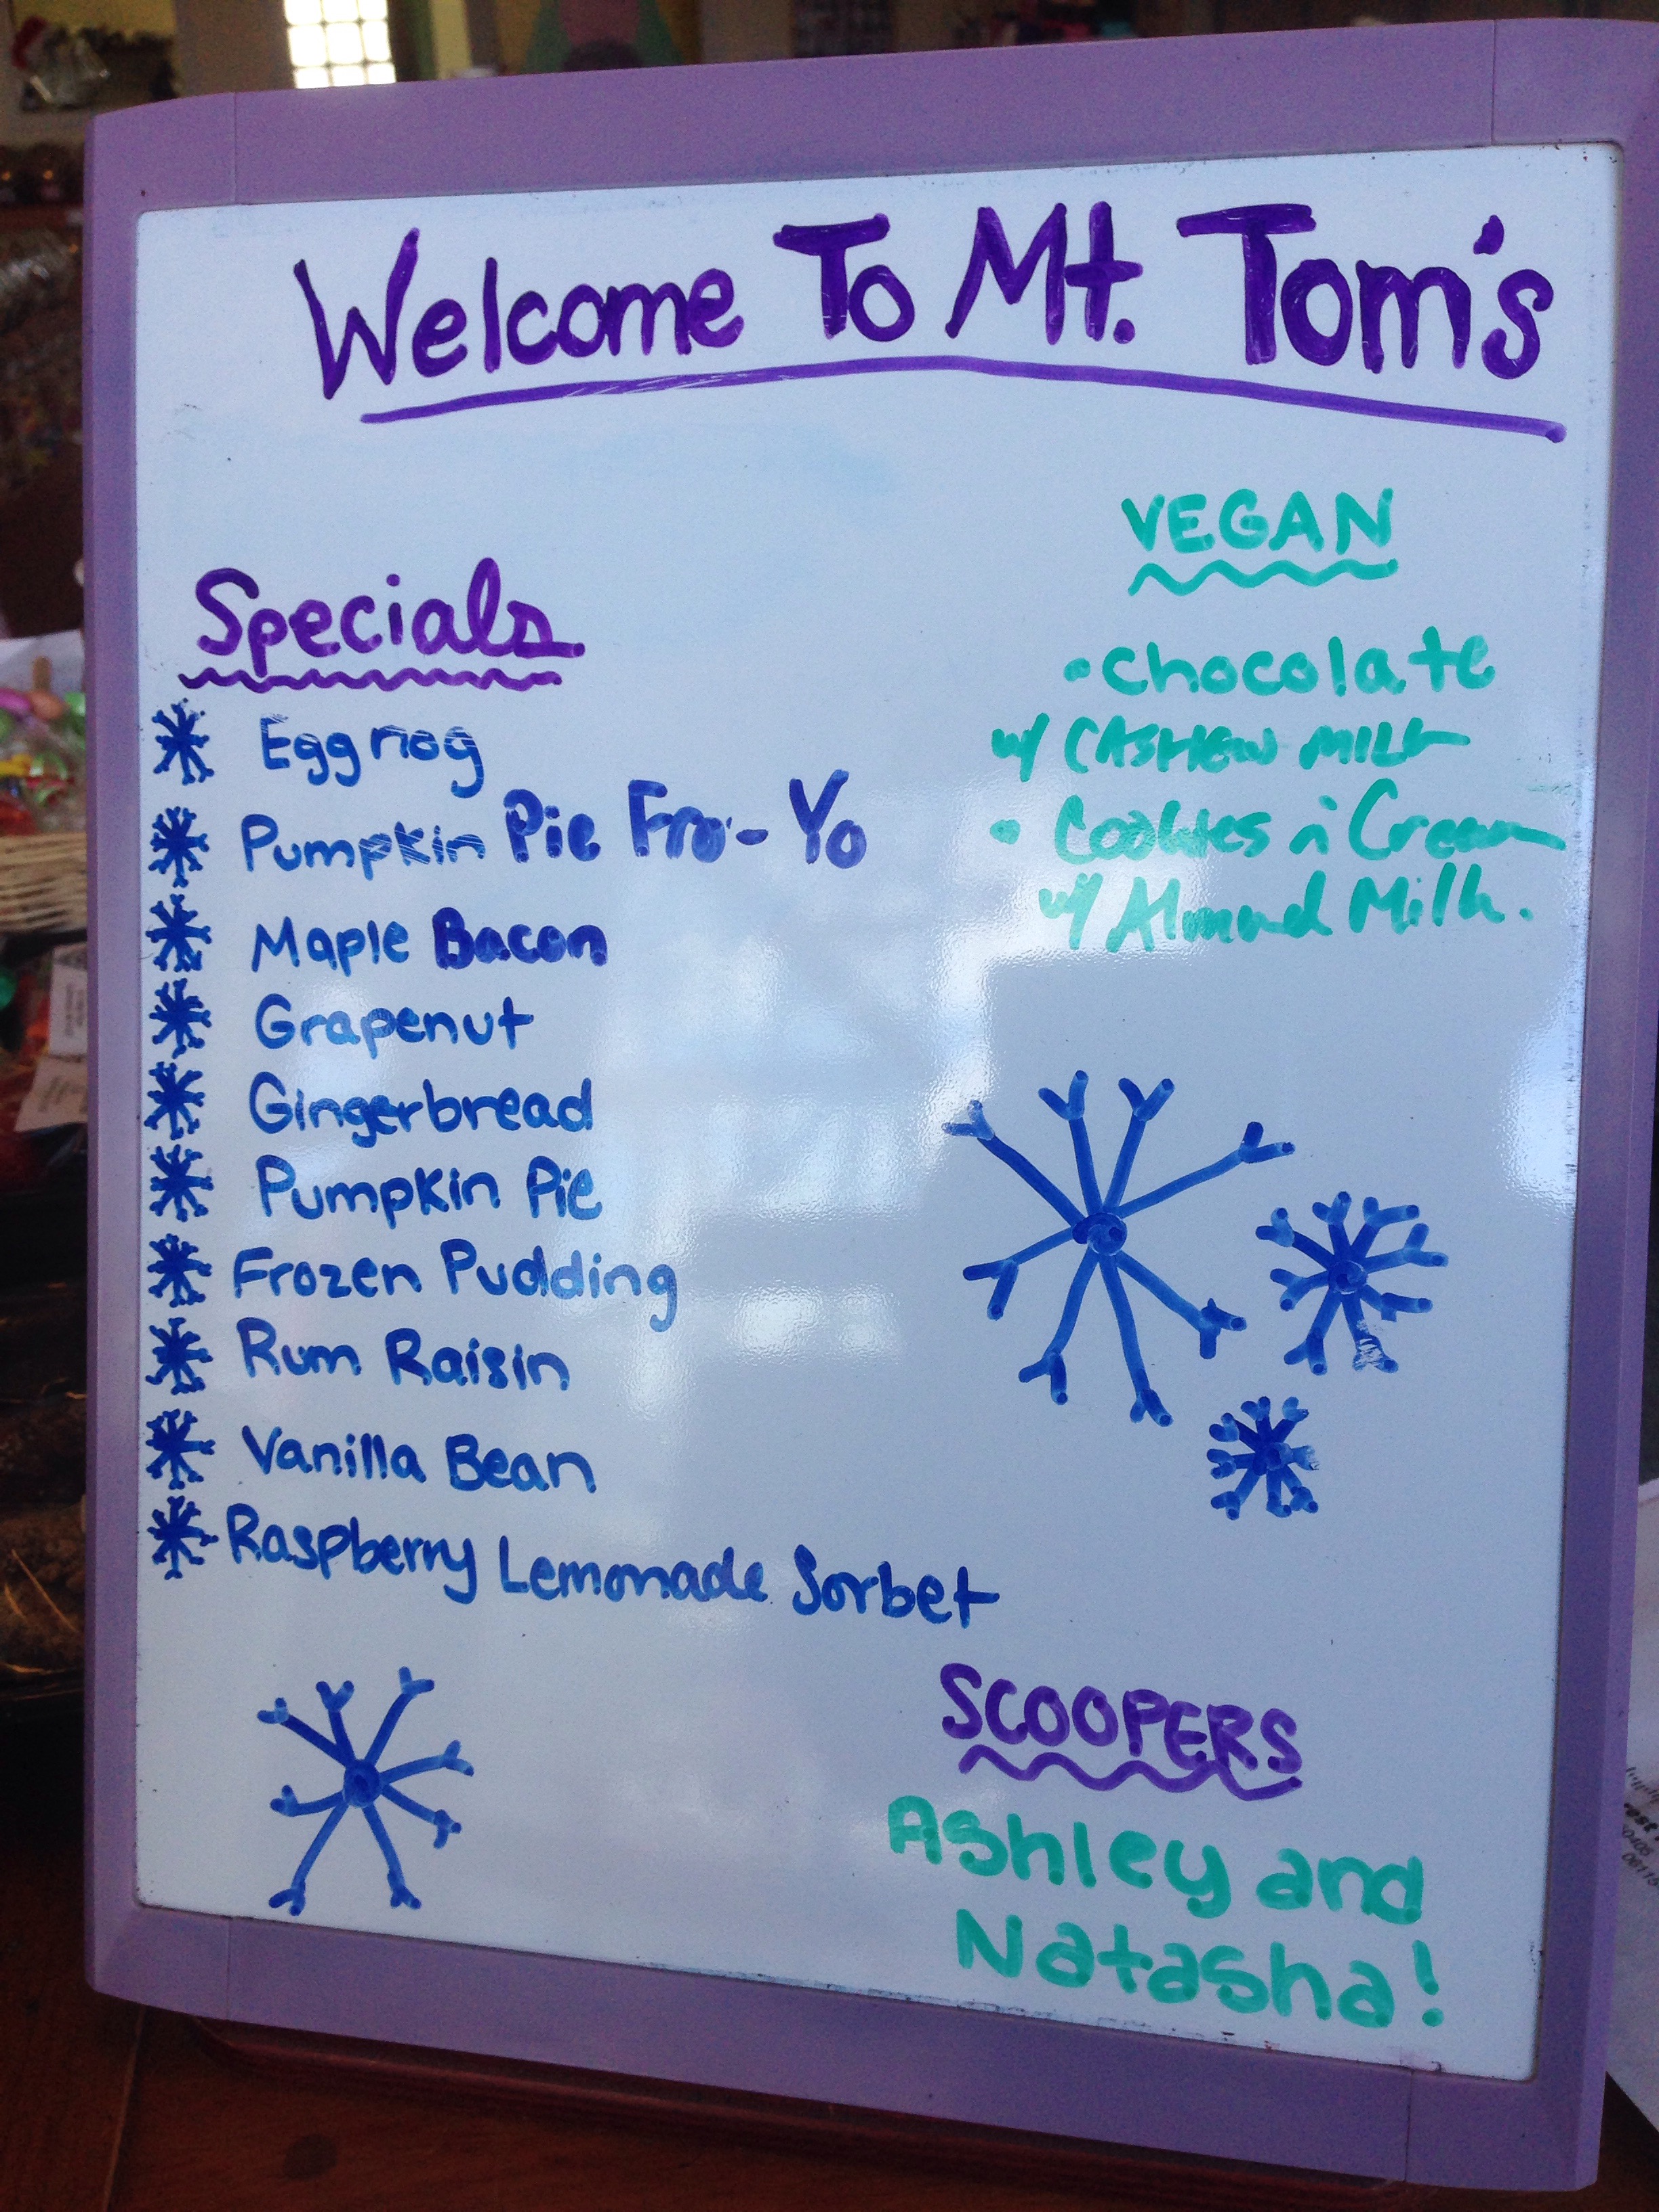 Welcome To Mt. Tom's
Specials
Eggnog
Pumpkin Pie Fro-Yo
Maple Bacon
Grapenut
Gingerbread
Pumpkin Pie
Frozen Pudding
Rum Raisin
Vanilla Bean
Raspberry Lemonade Sorbet
VEGAN
• Chocolate
w/ CASHEW MILK
• Cookies n' Cream
w/ Almond Milk.
SCOOPERS
Ashley and
Natasha!